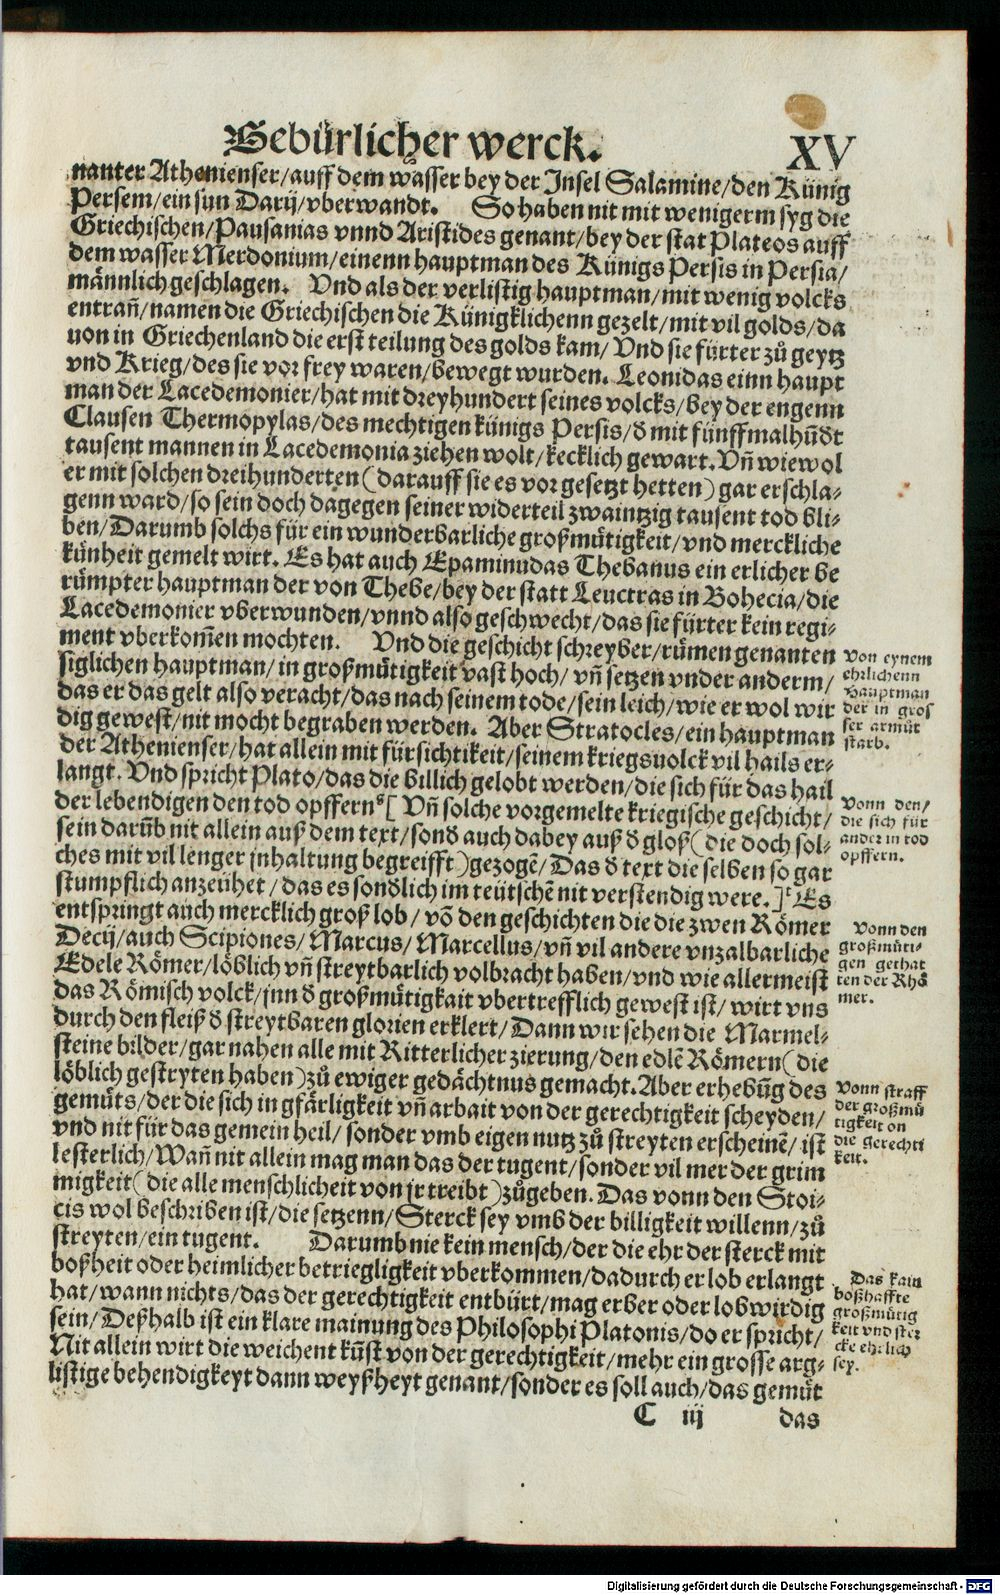 Gebürlicher werck.
XV
nanter Athenienser/auff dem wasser bey der Insel Salamine/den Künig
Persem/ein sun Darij/vberwandt. So haben nit mit wenigerm syg die
Griechischen/Pausanias vnnd Aristides genant/bey der stat Plateos auff
dem wasser Merdonium/einenn hauptman des Künigs Persis in Persia/
männlich geschlagen. Vnd als der verlistig hauptman/mit wenig volcks
entrañ/namen die Griechischen die Künigklichenn gezelt/mit vil golds/da
uon in Griechenland die erst teilung des golds kam/Vnd sie fürter zů geytz
vnd Krieg/des sie vor frey waren/bewegt wurden. Leonidas einn haupt
man der Lacedemonier/hat mit dreyhundert seines volcks/bey der engenn
Clausen Thermopylas/des mechtigen künigs Persis/đ mit fünffmalhũđt
tausent mannen in Lacedemonia ziehen wolt/kecklich gewart. Vñ wiewol
er mit solchen dreihunderten (darauff sie es vor gesetzt hetten) gar erschla-
genn ward/so sein doch dagegen seiner widerteil zwaintzig tausent tod bli-
ben/Darumb solchs für ein wunderbarliche großmütigkeit/vnd merckliche
künheit gemelt wirt. Es hat auch Epaminudas Thebanus ein erlicher be
rümpter hauptman der von Thebe/bey der statt Leuctras in Bohecia/die
Lacedemonier vberwunden/vnnd also geschwecht/das sie fürter kein regi-
ment vberkom̃en mochten. Vnd die geschicht schreyber/rümen genanten
siglichen hauptman/in großmütigkeit vast hoch/vñ setzen vnder anderm/
das er das gelt also veracht/das nach seinem tode/sein leich/wie er wol wir
dig gewest/nit mocht begraben werden. Aber Stratocles/ein hauptman
der Athenienser/hat allein mit fürsichtikeit/seinem kriegsuolck vil hails er-
langt. Vnd spricht Plato/das die billich gelobt werden/die sich für das hail
der lebendigen den tod opffern [Vñ solche vorgemelte kriegische geschicht/
sein darũb nit allein auß dem text/sonđ auch dabey auß đ gloß (die doch sol-
ches mit vil lenger jnhaltung begreifft) gezogẽ/Das đ text die selben so gar
stumpflich anzeühet/das es sonđlich im teütschẽ nit verstendig were.] Es
entspringt auch mercklich groß lob/võ den geschichten die die zwen Römer
Decij/auch Scipiones/Marcus/Marcellus/vñ vil andere vnzalbarliche
Edele Römer/löblich vñ streytbarlich volbracht haben/vnd wie allermeist
das Römisch volck/jnn đ großmütigkait vbertrefflich gewest ist/wirt vns
durch den fleiß đ streytbaren glorien erklert/Dann wir sehen die Marmel-
steine bilder/gar nahen alle mit Ritterlicher zierung/den edlẽ Römern (die
löblich gestryten haben) zů ewiger gedächtnus gemacht. Aber erhebũg des
gemüts/der die sich in gfärligkeit vñ arbait von der gerechtigkeit scheyden/
vnd nit für das gemein heil/sonder vmb eigen nutz zů streyten erscheinẽ/ist
lesterlich/Wañ nit allein mag man das der tugent/sonder vil mer der grim
migkeit (die alle menschlicheit von jr treibt) zůgeben. Das vonn den Stoi-
cis wol beschriben ist/die setzenn/Sterck sey vmb der billigkeit willenn/zů
streyten/ein tugent. Darumb nie kein mensch/der die ehr der sterck mit
boßheit oder heimlicher betriegligkeit vberkommen/dadurch er lob erlangt
hat/wann nichts/das der gerechtigkeit entbürt/mag erber oder lobwirdig
sein/Deßhalb ist ein klare mainung des Philosophi Platonis/do er spricht/
Nit allein wirt die weichent kũst von der gerechtigkeit/mehr ein grosse arg-
listige behendigkeyt dann weyßheyt genant/sonder es soll auch/das gemüt
C iij das
Von eynem
ehrlichenn
hauptman
der in gros
ser armůt
starb.
Vonn den/
die sich für
ander in tod
opffern.
Vonn den
großmüti-
gen gethat
ten der Rhö
mer.
Vonn straff
der großmü
tigkeit on
die gerechti
keit.
Das kain
boßhaffte
großmütig
keit vnd ster
cke ehrlich
sey.
Digitalisierung gefördert durch die Deutsche Forschungsgemeinschaft - DFG